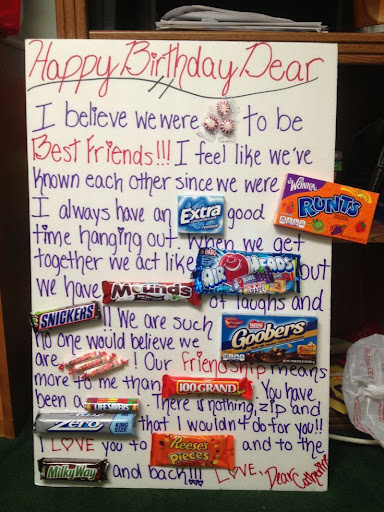 Happy Birthday Dear
I believe we were to be
Best Friends!!! I feel like we've
known each other since we were WONKA RUNTS
I always have an Extra good
time hanging out. When we get
together we act like AIRHEADS but
we have Mounds of laughs and
SNICKERS !! We are such Nestlé Goobers
no one would believe we
are ! Our friendship means
more to me than 100 GRAND . You have
been a LIFESAVERS . There is nothing, zip and
ZERO KING SIZE that I wouldn't do for you!!
LOVE you to REESE'S PIECES and to the
MilkyWay and back!!! LOVE, Dear Catherine